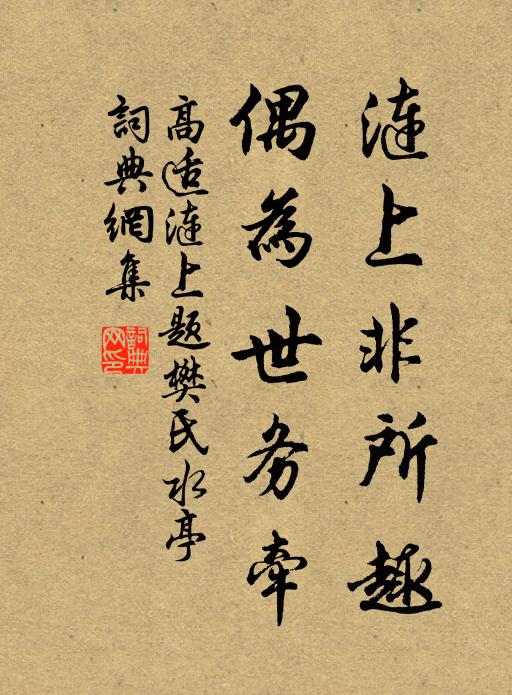 涟上非所趣
偶為世务牵
高适涟上题樊氏水亭
詞典網集
詞典网印